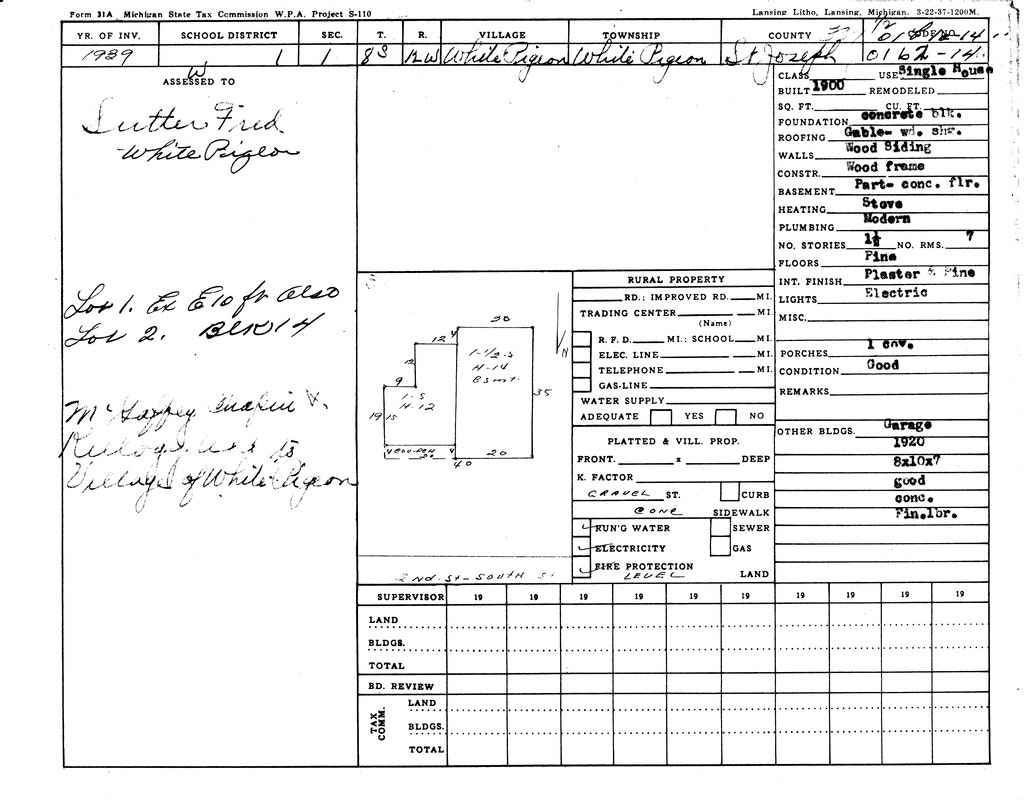 Form 31A Michigan State Tax Commission W.P.A. Project S-110
Lansing Litho, Lansing, Michigan. 3-22-37-1200M.
YR. OF INV. SCHOOL DISTRICT SEC. T. R. VILLAGE TOWNSHIP COUNTY
1939 1 1 8S 12W White Pigeon White Pigeon St. Joseph 0162-14.
W
ASSESSED TO
Sutter Fred
White Pigeon
Lot 1. Ex E 10 ft Also
Lot 2. BLK 14
Village of White Pigeon
CLASS USE Single House
BUILT 1900 REMODELED
SQ. FT. CU. FT.
FOUNDATION concrete blk.
ROOFING Gable- wd. shg.
WALLS Wood Siding
CONSTR. Wood frame
BASEMENT Part- conc. flr.
HEATING Stove
PLUMBING Modern
NO. STORIES 1½ NO. RMS. 7
FLOORS Pine
INT. FINISH Plaster & Pine
LIGHTS Electric
MISC.
PORCHES 1 cov.
CONDITION Good
REMARKS
OTHER BLDGS. Garage
1920
8x10x7
good
conc.
Fin.lbr.
30
12 4
1-1/2-S
H-14
Bsmt.
N
12
9
1-S
H-12
35
19 15
4 4
20
40
RURAL PROPERTY
RD.; IMPROVED RD. MI.
TRADING CENTER MI.
(Name)
R. F. D. MI.; SCHOOL MI.
ELEC. LINE MI.
TELEPHONE MI.
GAS-LINE
WATER SUPPLY
ADEQUATE YES NO
PLATTED & VILL. PROP.
FRONT. x DEEP
K. FACTOR
GRAVEL ST. CURB
CONC SIDEWALK
RUN'G WATER SEWER
ELECTRICITY GAS
FIRE PROTECTION
LEVEL LAND
2ND. ST- SOUTH St
SUPERVISOR 19 19 19 19 19 19 19 19 19 19
LAND
BLDGS.
TOTAL
BD. REVIEW
TAX COMM.
LAND
BLDGS.
TOTAL